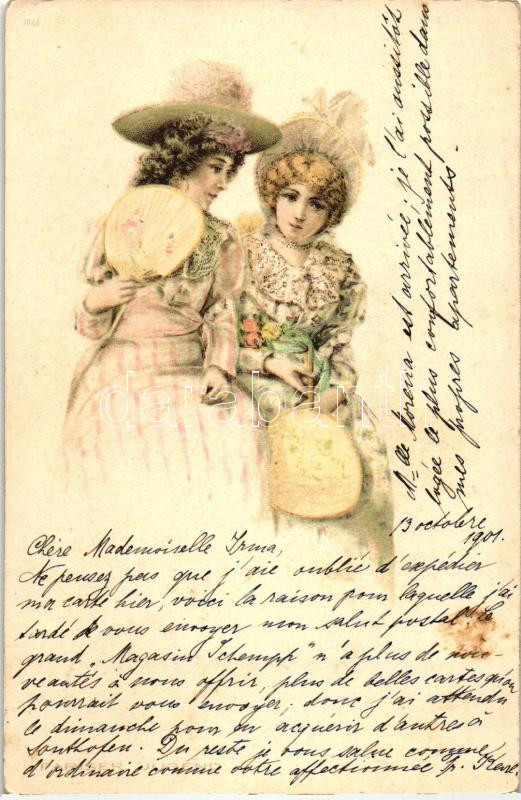 Chère Mademoiselle Irma,
Ne pensez pas que j'aie oublié d'expédier
ma carte hier, voici la raison pour laquelle j'ai
tardé de vous envoyer mon salut postal. Le
grand „Magasin Tchempp" n'a plus de nou-
veautés à nous offrir, plus de belles cartes qu'on
pourrait vous envoyer; donc j'ai attendu
le dimanche pour en acquérir d'autres à
Sonthofen. Du reste je vous salue comme
d'ordinaire comme votre affectionnée
PARISER JUGEND
13 octobre
1901.
Mlle Morena est arrivée, je l'ai aussitôt
logée le plus confortablement possible dans
mes propres apartements.
darabanth